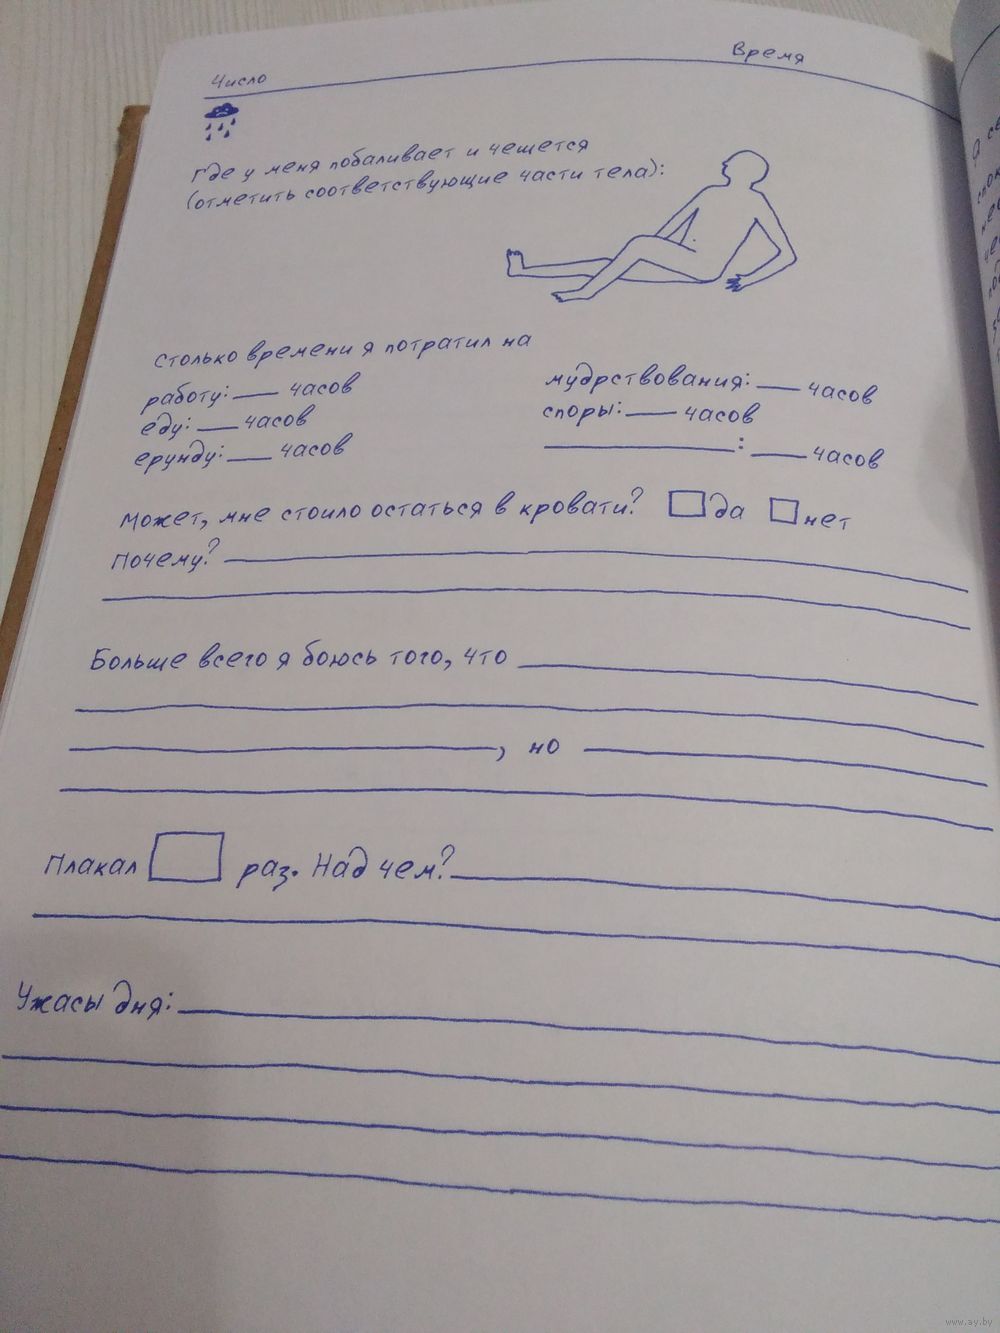 Число
Время
Где у меня побаливает и чешется
(отметить соответствующие части тела):
столько времени я потратил на
работу: ___ часов
еду: ___ часов
ерунду: ___ часов
мудрствования: ___ часов
споры: ___ часов
___: ___ часов
Может, мне стоило остаться в кровати? да нет
Почему?
Больше всего я боюсь того, что
, но
Плакал раз. Над чем?
Ужасы дня:
www.ay.by